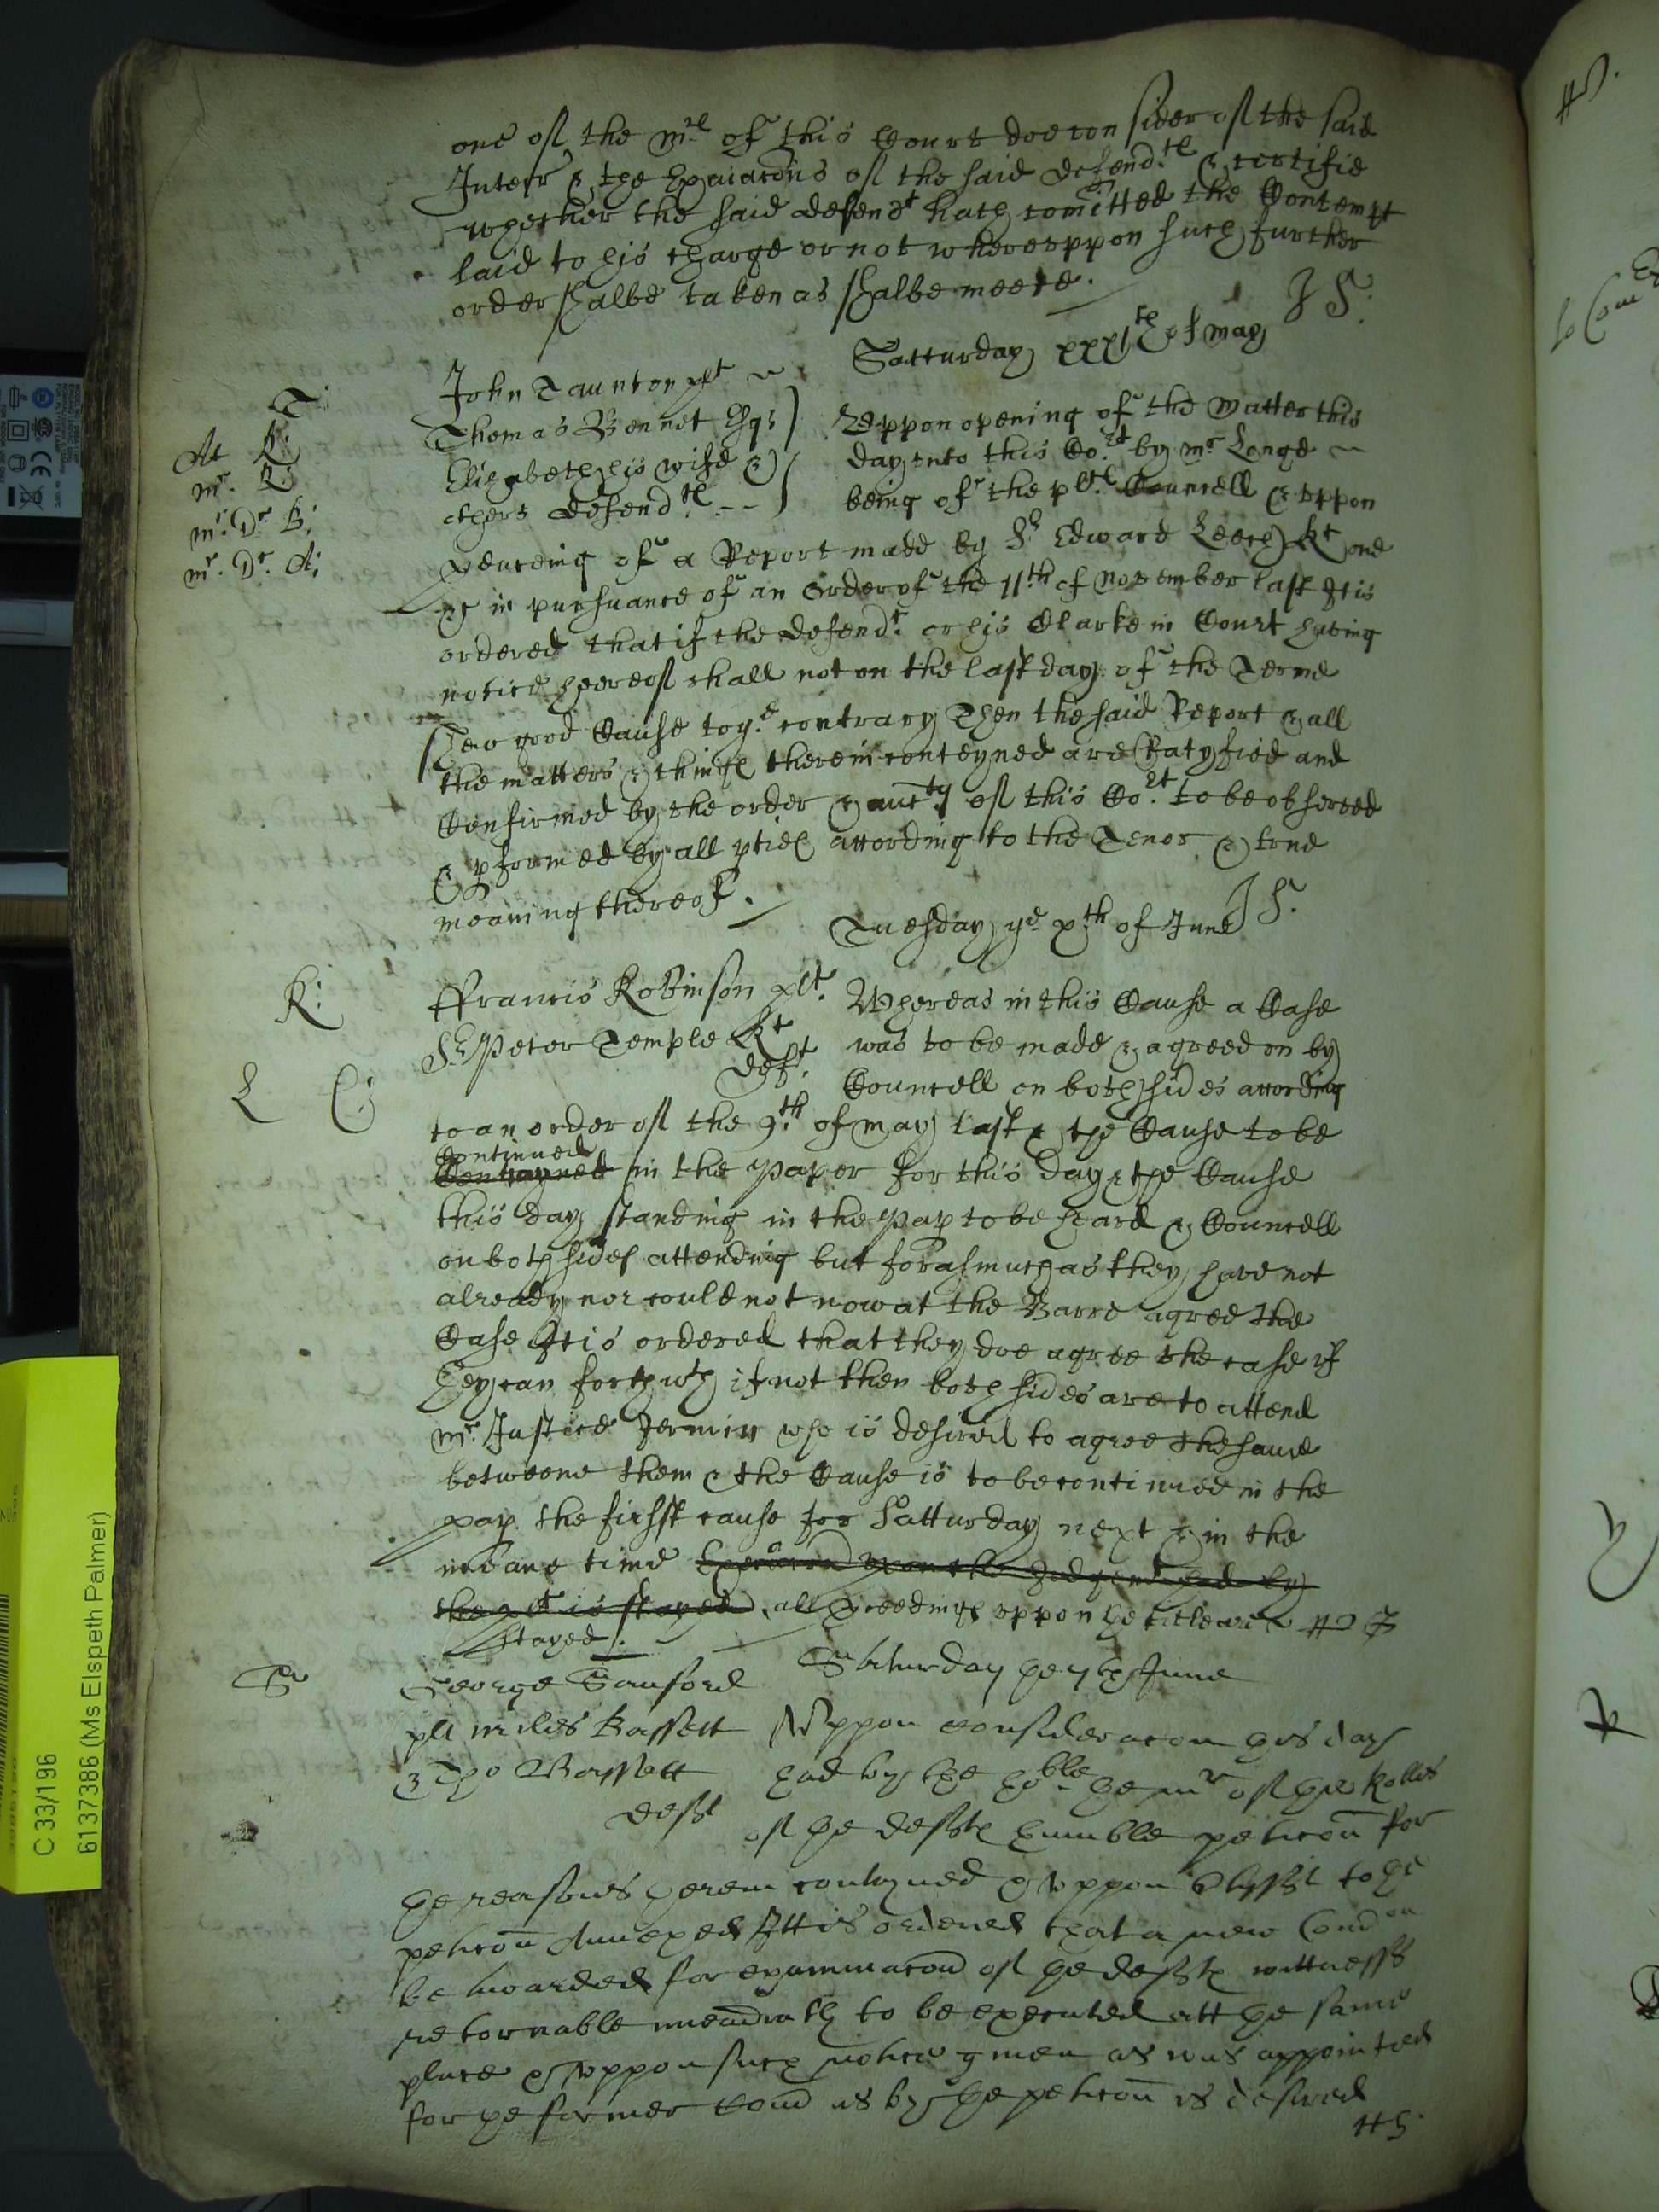 one of the mrs of this Court doe consider of the said
Interr & the Exaiacons of the said defendts & certifie
whether the said defendt hath comitted the Contempt
laid to his charge or not whereuppon such further
order shalbe taken as shalbe meete.
J S:
Satturday xxxjth of may
T
At R:
mr. R:
mr. Dr B:
mr. Dr. A:
John Taunton plt
Thomas Bennet Esqr
Elizabeth his wife &
others Defendts
Uppon opening of the matter this
day unto this Cort by mr Longe
being of the plts Councell & uppon
readeing of a Report made by Sr Edward Leech Kt one
&c in pursuance of an Order of the 11th of November last It is
ordered that if the Defendt. or his Clarke in Court haveing
notice hereof shall not on the last day of the Terme
shew good Cause to ye contrary Then the said Report & all
the matters & things therein conteyned are Ratyfied and
Confirmed by the order & aucty of this Cort to be observed
& pformed by all pties according to the Tenor & true
meaning thereof.
J S.
Tuesday ye xth of June
R:
L C:
ffrancis Robinson plt.
Sr Peter Temple Kt
Deft.
Whereas in this Cause a Case
was to be made & agreed on by
Councell on both sides according
to an order of the 9th of may last & the Cause to be
Continued
Contayned in the Paper for this day & the Cause
this day standing in the Pap to be heard & Councell
on both sides attending but forasmuch as they have not
already nor could not now at the Barre agree the
Case It is ordered that they doe agree the case if
they can forthwth if not then both sides are to attend
mr. Justice Jermin who is desired to agree the same
betweene them & the Cause is to be continued in the
pap the first cause for Satturday next & in the
meane time Execucon upon the Judgemt had by
the plt is stayed, all proceedings uppon the
stayed.
Saturday the 7th June
George Sanford
plt miles Bassett
& Tho Bassett
Deftes
Uppon consideracon this day
had by the hoble the mr of the Rolles
of the Deftes humble peticon for
the reasons therein contayned & uppon to the
peticon Annexed Itt is ordered that a new Comdon
be awarded for examinacon of the Deftes wittnesses
retornable to be executed att the same
place & uppon such notice given as was appointed
for the former Comd as by the peticon is desired
HS.
C 33/196
6137386 (Ms Elspeth Palmer)